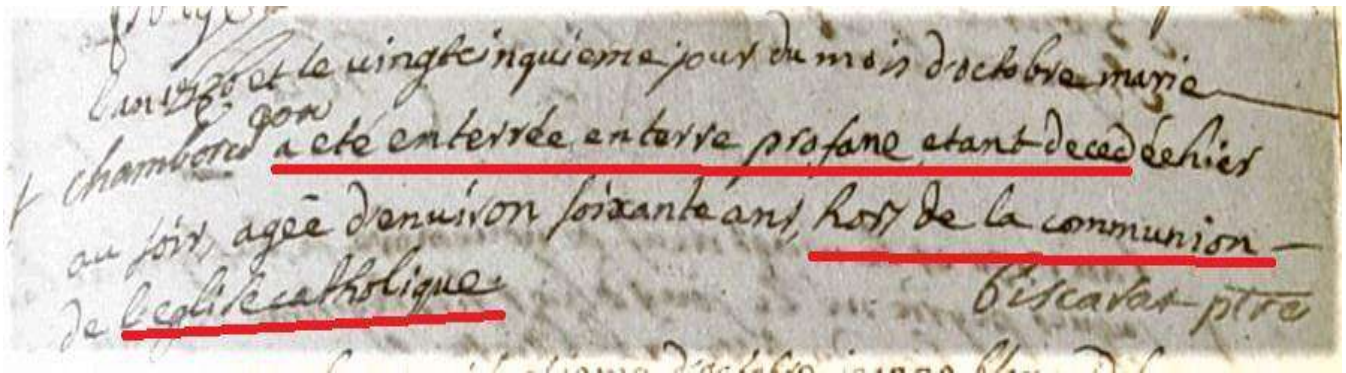 l'an et le vingtcinquieme jour du mois d'octobre marie
chambord
a eté enterrée en terre profane etant decedée hier
au soir, agée d'enuiron soixante ans, hors de la communion
de l'eglise catholique
Biscarat ptre
d'octobre jeanne